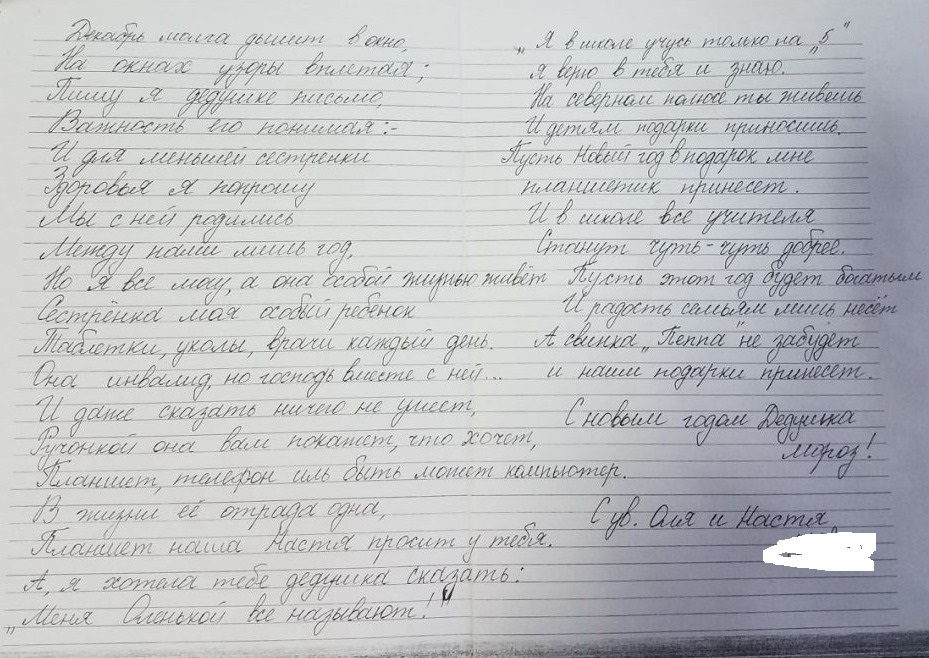 Декабрь молча дышит в окно,
На окнах узоры вплетая;
Пишу я дедушке письмо,
Важность его понимая:-
И для меньшей сестренки
Здоровья я попрошу
Мы с ней родились
Между нами лишь год.
Но я все могу, а она особой жизнью живёт
Сестрёнка моя особый ребёнок
Таблетки, уколы, врачи каждый день.
Она инвалид, но господь вместе с ней...
И даже сказать ничего не умеет,
Ручонкой она вам покажет, что хочет,
Планшет, телефон иль быть может компьютер.
В жизни её отрада одна,
Планшет наша Настя просит у тебя.
А, я хотела тебе дедушка сказать:
„Меня Оленькой все называют!"
„Я в школе учусь только на „5"
Я верю в тебя и знаю.
На северном полюсе ты живешь
И детям подарки приносишь.
Пусть Новый год в подарок мне
планшетик принесет.
И в школе все учителя
Станут чуть-чуть добрее.
Пусть этот год будет богатым
И радость семьям лишь несёт
А свинка „Пеппа" не забудет
и наши подарки принесет.
С новым годом Дедушка
мороз!
С ув. Оля и Настя